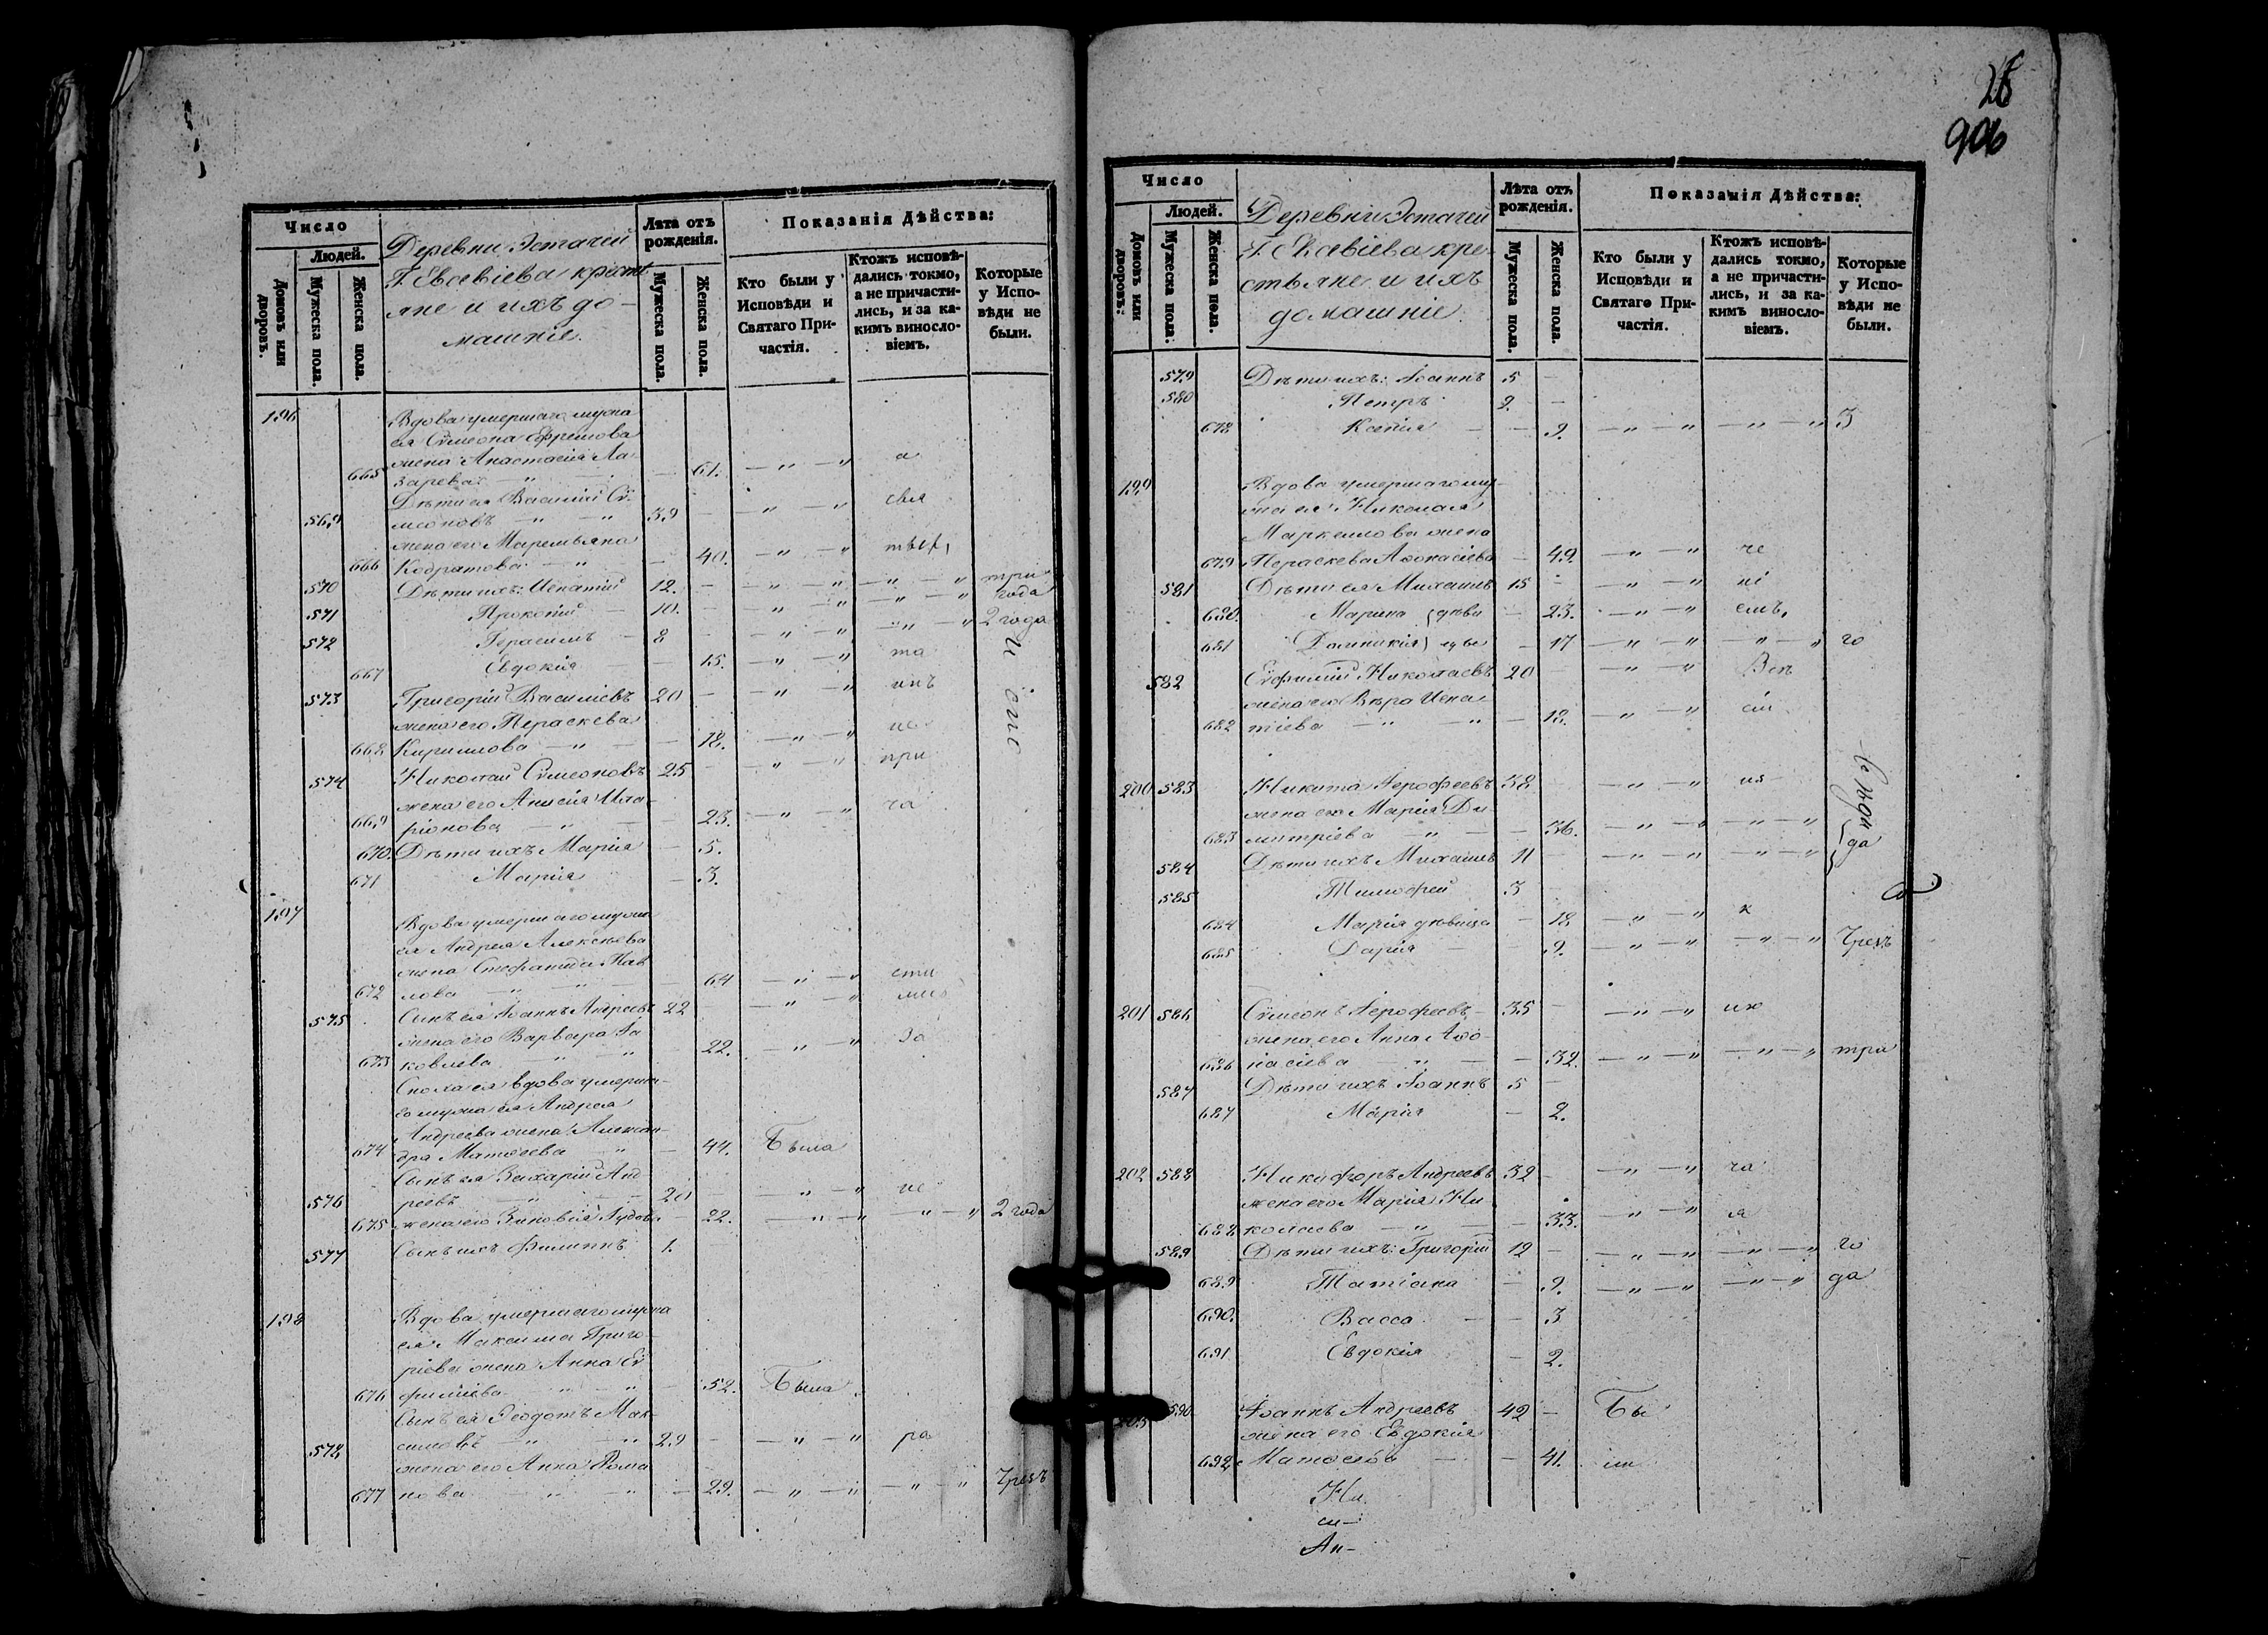 Число
Людей.
Домовъ или дворовъ.
Мужеска пола.
Женска пола.
Деревни Эстачей
Г. Евсевіева крестья
яне и ихъ до-
машніе.
Лѣта отъ рожденія.
Мужеска пола.
Женска пола.
Показанія Дѣйства:
Кто были у Исповѣди и Святаго Причастія.
Ктожъ исповѣдались токмо, а не причастились, и за какимъ винословіемъ.
Которые у Исповѣди не были.
196 Вдова умершаго мужа
ея Симеона Ефремова
жена Анастасія Ла-
665 зарева — 61. а
Дѣти ея Василій Си-
569 меоновъ 39 — свя
жена его
666 Кодратова — 40.
570 Дѣти ихъ: Игнатій 12. — три
571 Прокопій 10. — года
572 Герасимъ 8 — 2 года
667 Евдокія — 15. та
573 Григорій Василіевъ 20 —
жена его Параскева
668 Кириллова — 18. не
574 Николай Симеоновъ 25 при
жена его Анисія Ила-
669 ріонова — 23. ча
670. Дѣти ихъ Марія — 5.
671 Марія — 3.
197 Вдова умершаго мужа
ея Андрея Алексѣева
жена Стефанида Пав
672 лова — 64 сти
575 Сынъ ея Іоаннъ Андреевъ 22
жена его Варвара Іа
673 ковлева 22. за
Сноха ея вдова умерша-
го мужа ея Андрея
Андреева жена Алексан-
674 дра Матѳеева — 44. Была
Сынъ ея Захарій Анд
576 реевъ 20 — не
675 жена его Зиновія — 22. 2 года
577 Сынъ ихъ Филиппъ 1.
198 Вдова умершаго мужа
ея Максима Григо-
ріева жена Анна Ев
676 фиміева — 52. Была
Сынъ ея Ѳеодотъ Мак-
578 симовъ 29 — ра
жена его Анна Рома
677 нова — 29. Чрезъ
906
Число
Людей.
Домовъ или дворовъ.
Мужеска пола.
Женска пола.
Деревни Эстачей
Г. Евсевіева кре-
стьяне и ихъ
домашніе.
Лѣта отъ рожденія.
Мужеска пола.
Женска пола.
Показанія Дѣйства:
Кто были у Исповѣди и Святаго Причастія.
Ктожъ исповѣдались токмо, а не причастились, и за какимъ винословіемъ.
Которые у Исповѣди не были.
579 Дѣти ихъ: Іоаннъ 5 —
580 Петръ 2. —
678 Ксенія — 9. 3
199 Вдова умершаго му-
жа ея Николая
Маркеллова жена
679 Параскева Аѳонасіева — 49. че
581 Дѣти ея Михаилъ 15 — ні
680. Марина — 23. емъ,
681 Домникія — 17 го
582 Евфимій Николаевъ 20 —
жена его Вѣра Игна
682 тіева — 18.
200 583 Никита Іерофеевъ 38 —
жена его Марія Ди
683 митріева — 36.
584 Дѣти ихъ Михаилъ 11 — да
585 Тимофей 3
684 Марія дѣвица — 18 к
685 Дарія — 9. Чрезъ
201 586 Симеонъ Іерофеевъ 35 — их
жена его Анна Аѳо-
686 насіева — 32. три
587 Дѣти ихъ Іоаннъ 5 —
687 Марія — 2.
202 588 Никифоръ Андреевъ 32 — ча
жена его Марія Ни
688 колаева — 33. я
589 Дѣти ихъ: Григорій 12 — го
689 Татіана — 9. да
690. Васса — 3
691 Евдокія — 2.
590 Іоаннъ Андреевъ 42 — Бы
жена его Евдокія
692 Матѳеева — 41. ли
Ни
си-
Ан-